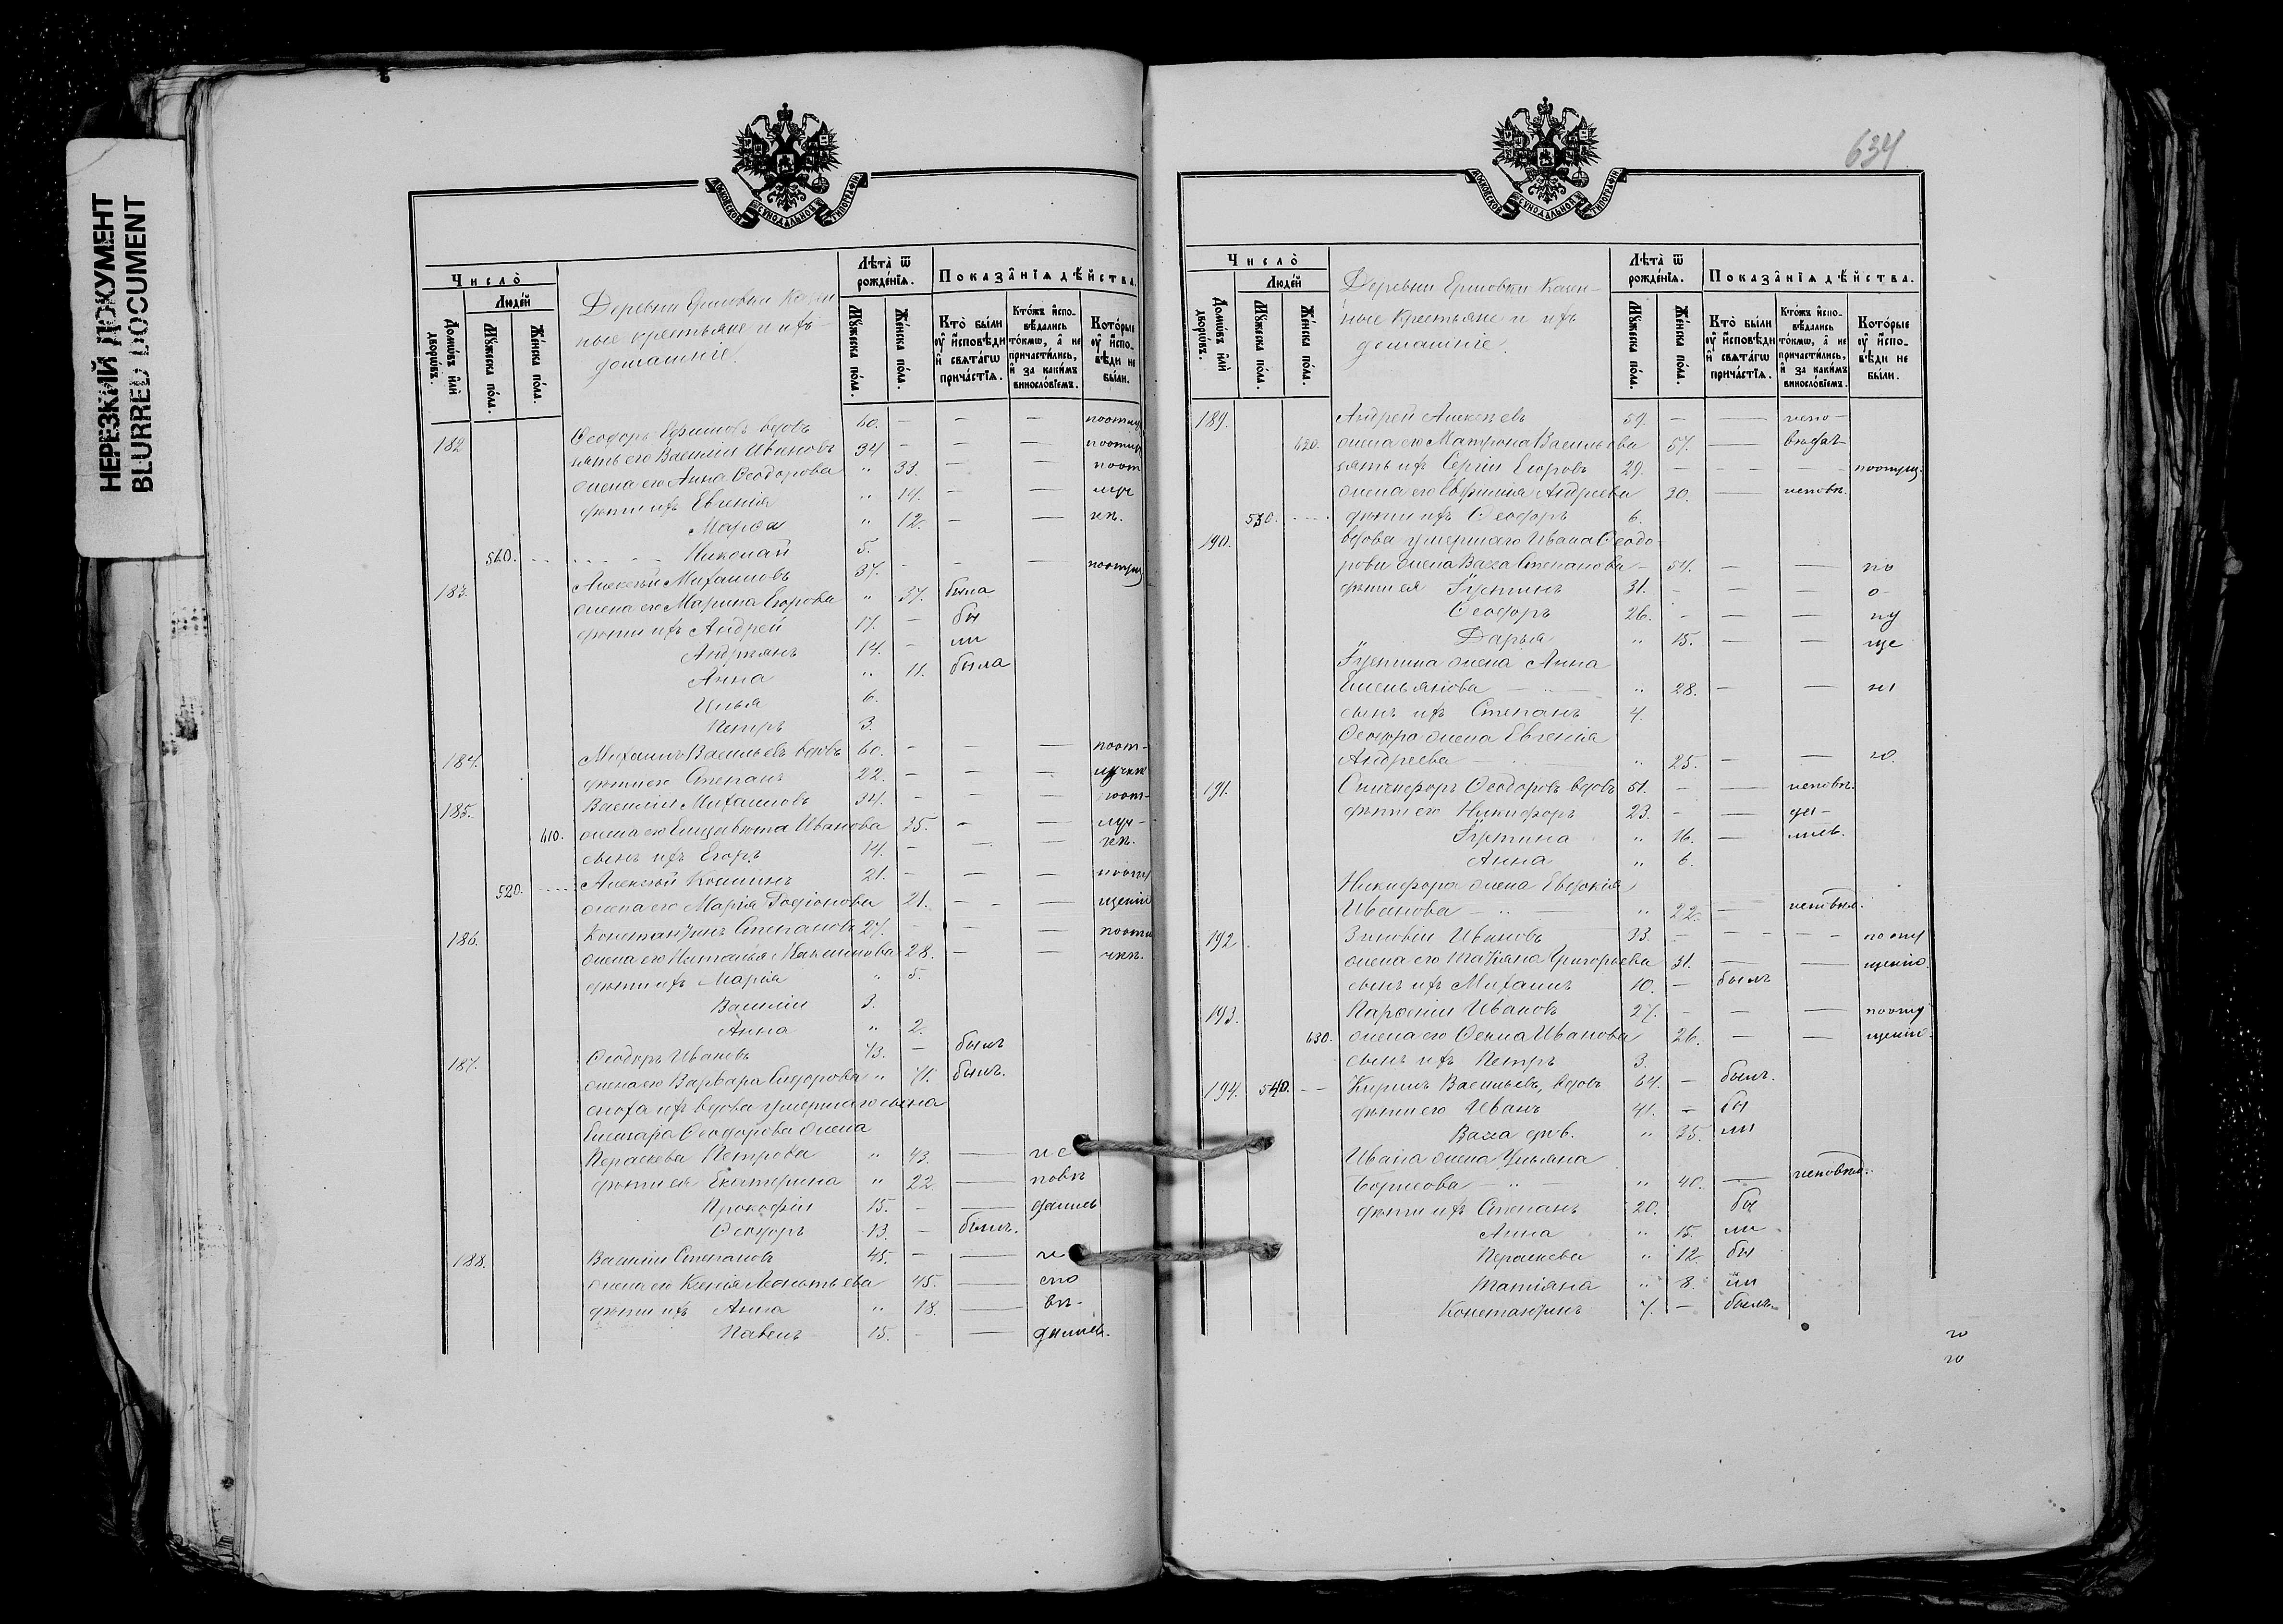 НЕРЕЗКИЙ ДОКУМЕНТ
BLURRED DOCUMENT
МОСКОВСКОЙ СѴНОДАЛЬНОЙ ТИПОГРАФІИ
Число̀
Люде́й
Домѡ́въ и҆лѝ дворѡ́въ.
Мꙋ́жеска по́ла.
Же́нска по́ла.
Деревни Ершовки Казен
ные крестьяне и ихъ
домашніе.
Лѣта̀ ѿ рожде́нїѧ.
Мꙋ́жеска по́ла.
Же́нска по́ла.
Показа̑нїѧ дѣ́йства.
Кто̀ бы́ли ᲂу҆ и҆спо́вѣди и҆ свѧта́гѡ прича́стїѧ.
Кто́жъ и҆спо-вѣ́дались то́кмѡ, а҆ не причасти́лись, и҆ за каки́мъ винослові́емъ.
Кото́рые ᲂу҆ и҆спо-вѣди не бы́ли.
182 Ѳеодоръ Ефимовъ вдовъ 60. — — —
зять его Василій Ивановъ 34 — — —
жена его Анна Ѳеодорова " 33. — — поот
дѣти ихъ Евгенія " 14. — — луч
Марѳа " 12. — — кѣ.
540. Николай 5.
183. Алексѣй Михаиловъ 37. — — —
жена его Марина Егорова " 37. была
дѣти ихъ Андрей 17. — бы
Андреянъ 14. — ли
Анна " 11. была
Илья 6.
Петръ 3.
184. Михаилъ Васильевъ вдовъ 60. — — — поот-
дѣти его Степанъ 22. — — — лучкѣ
185. Василій Михаиловъ 34. — — — поот-
610. жена его Елизавета Иванова 35. — — луч-
сынъ ихъ Егоръ 14. — — — кѣ.
520. Алексѣй Козминъ 21. — — —
жена его Марія Родіонова 21. — — —
186. Константинъ Степановъ 27. — — —
жена его Наталья Максимова 28. — — чкѣ.
дѣти ихъ Марія " 5.
Василій 3.
Анна " 2.
187. Ѳеодоръ Ивановъ 73. — былъ
жена его Варвара Сидорова " 71. былъ.
сноха ихъ вдова умершаго сына
Елизара Ѳеодорова жена
Параскева Петрова " 43. — ис
дѣти ея Екатерина " 22. — повѣ
Прокофій 15. — — дались
Ѳеодоръ 13. — былъ.
188. Василій Степановъ 45. — — и
жена его Ксенія Леонтьева 45. — спо
дѣти ихъ Анна " 18. — вѣ-
Павелъ 15. — — дались.
634
МОСКОВСКОЙ СѴНОДАЛЬНОЙ ТИПОГРАФІИ
Число̀
Люде́й
Домѡ́въ и҆лѝ дворѡ́въ.
Мꙋ́жеска по́ла.
Же́нска по́ла.
Деревни Ершовки Казен-
ные крестьяне и ихъ
домашніе.
Лѣта̀ ѿ рожде́нїѧ.
Мꙋ́жеска по́ла.
Же́нска по́ла.
Показа̑нїѧ дѣ́йства.
Кто̀ бы́ли ᲂу҆ и҆спо́вѣди и҆ свѧта́гѡ прича́стїѧ.
Кто́жъ и҆спо-вѣ́дались то́кмѡ, а҆ не причасти́лись, и҆ за каки́мъ винослові́емъ.
Кото́рые ᲂу҆ и҆спо-вѣди не бы́ли.
189. Андрей Алексѣевъ 59. — — испо-
620. жена его Матрона Васильева 57. —
зять ихъ Сергій Егоровъ 29. — — —
жена его Евфимія Андреева 30. — исповѣ.
530. дѣти ихъ Ѳеодоръ 6.
190. вдова умершаго Ивана Ѳеодо
рова жена Васса Степанова 54. — — по
дѣти ея Іустинъ 31. — — — о-
Ѳеодоръ 26. — — — пу
Дарья " 15. — — ще
Іустина жена Анна
Емельянова " 28. — — ні
сынъ ихъ Степанъ 4.
Ѳеодора жена Евгенія
Андреева " 25. — — ю.
191. Ѳеодоровъ вдовъ 51. — — исповѣ.
дѣти его Никифоръ 23. — — да-
Іустина " 16. — лись.
Анна " 6.
Никифора жена Евдокія
Иванова " 22. —
192. Зиновій Ивановъ 33. — — — поопу
жена его Татіана Григорьева 31. — — щенію.
сынъ ихъ Михаилъ 10. — былъ
193. Парѳеній Ивановъ 27. — — — поопу
630. жена его Ѳекла Иванова 26. — — щенію.
сынъ ихъ Петръ 3.
194. 540. Кирилъ Васильевъ, вдовъ 64. — былъ.
дѣти его Иванъ 41. — бы
Васса дѣв. " 35. ли
Ивана жена Ульяна
Борисова " 40. —
дѣти ихъ Степанъ 20. бы
Анна " 15. ли
Параскева " 12. бы
Татіана " 8. ли
Константинъ 7. — былъ.
ю
ю